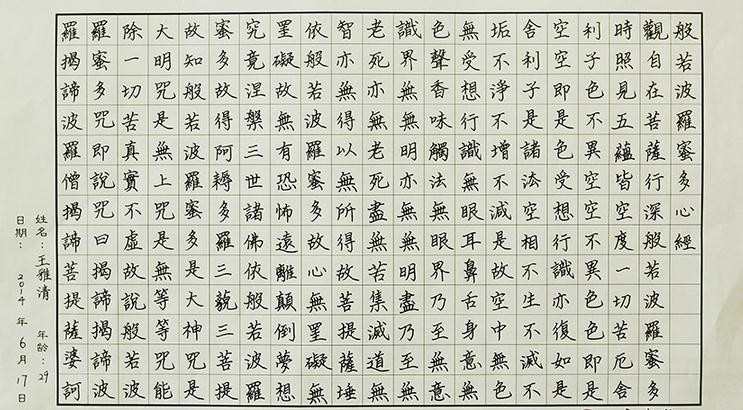 般若波羅蜜多心經
觀自在菩薩行深般若波羅蜜多
時照見五蘊皆空度一切苦厄舍
利子色不異空空不異色色即是
空空即是色受想行識亦復如是
舍利子是諸法空相不生不滅不
垢不淨不增不減是故空中無色
無受想行識無眼耳鼻舌身意無
色聲香味觸法無眼界乃至無意
識界無無明亦無無明盡乃至無
老死亦無老死盡無苦集滅道無
智亦無得以無所得故菩提薩埵
依般若波羅蜜多故心無罣礙無
罣礙故無有恐怖遠離顛倒夢想
究竟涅槃三世諸佛依般若波羅
蜜多故得阿耨多羅三藐三菩提
故知般若波羅蜜多是大神咒是
大明咒是無上咒是無等等咒能
除一切苦真實不虛故說般若波
羅蜜多咒即說咒曰揭諦揭諦波
羅揭諦波羅僧揭諦菩提薩婆訶
姓名：王雅清 年齡：29
日期：2014年6月17日